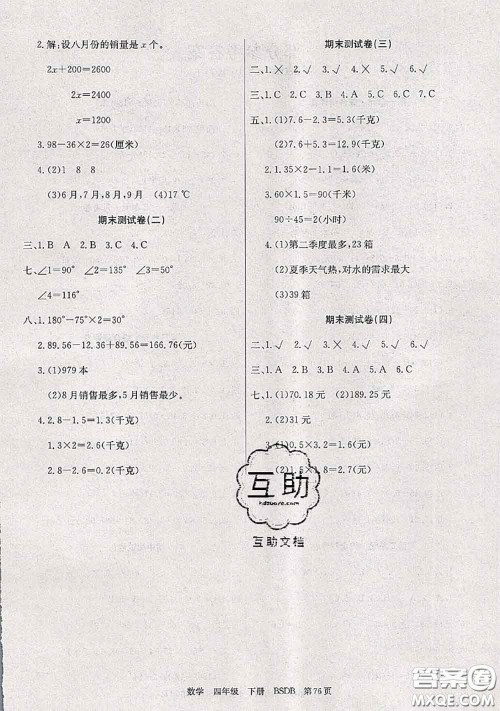 2.解:设八月份的销量是x个。
2x+200=2600
2x=2400
x=1200
3.98-36×2=26(厘米)
4.(2)1 8 8
(3)6月,7月,8月,9月 (4)17℃
期末测试卷(二)
三、1.B A 2.B 3.C 4.C
七、∠1=90° ∠2=64° ∠3=26°
∠4=116°
八、1.180°-75°×2=30°
2.89.56-12.36+89.56=166.76(元)
3.(1)979本
(2)8月销售最多,5月销售最少。
4.2.8-1.5=1.3(千克)
1.3×2=2.6(千克)
2.8-2.6=0.2(千克)
期末测试卷(三)
二、1.× 2.√ 3.× 4.√ 5.√ 6.√
三、1.C 2.C 3.B 4.A 5.C 6.C
五、1.(1)7.6-2.3=5.3(千克)
(2)7.6+5.3=12.9(千克)
2.1.35×2-1.1=1.6(米)
3.60×1.5=90(千米)
90÷45=2(小时)
4.(1)第二季度最多,23箱
(2)夏季天气热,对水的需求最大
(3)39箱
期末测试卷(四)
二、1.√ 2.√ 3.× 4.√
三、1.A 2.B 3.C 4.C 5.B
七、1.(1)70.18元 (2)189.25元
2.(2)31元
3.(1)0.5×2+0.2×3=1.6(元)
(2)1.5×1.8=2.7(元)
互助
互助文档
数学 四年级 下册 BSDB 第76页
答案圈
MXQE.COM